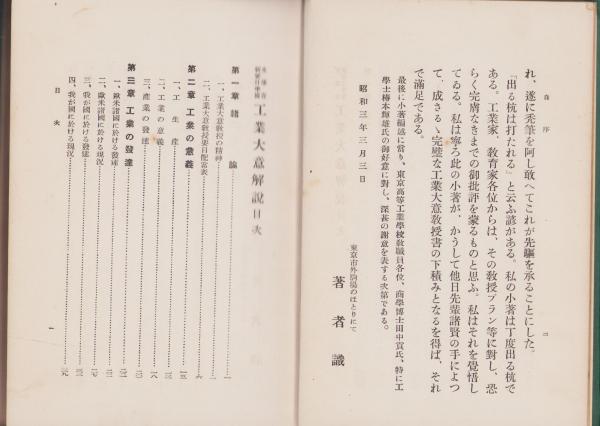 自序
れ、遂に禿筆を呵し敢へてこれが先驅を承ることにした。
「出る杭は打たれる」と云ふ諺がある。私の小著は丁度出る杭で
ある。工業家、教育家各位からは、その教授プラン等に對し、恐
らく完膚なきまでの御批評を蒙るものと思ふ。私はそれを覺悟し
てゐる。私は寧ろ此の小著が、かうして他日先輩諸賢の手によつ
て、成さるゝ完璧な工業大意教授書の下積みとなるを得ば、それ
で滿足である。
最後に小著編述に當り、東京高等工業學校教職員各位、商學博士田中貢氏、特に工
學士椿本輝雄氏の御好意に對し、深甚の謝意を表する次第である。
昭和三年三月三日
東京市外駒場のほとりにて
著者識
二
工業大意解說目次
第一章 緖論
一、工業大意教授の精神
二、工業大意教授要目配當表
第二章 工業の意義
一、工生産
二、工業の意義
三、産業の發達
第三章 工業の發達
一、歐米諸國に於ける發達
二、歐米諸國に於ける現況
三、我が國に於ける發達
四、我が國に於ける現況
目次
一